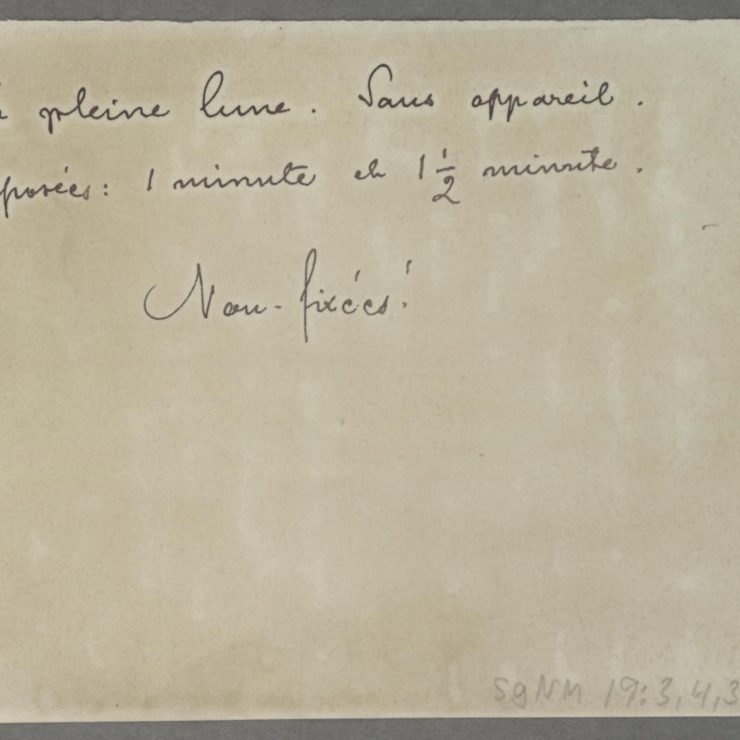 pleine lune. Sans appareil.
posées: 1 minute et 1 1/2 minute.
Non-fixées!
SgNM 19:3,4,3